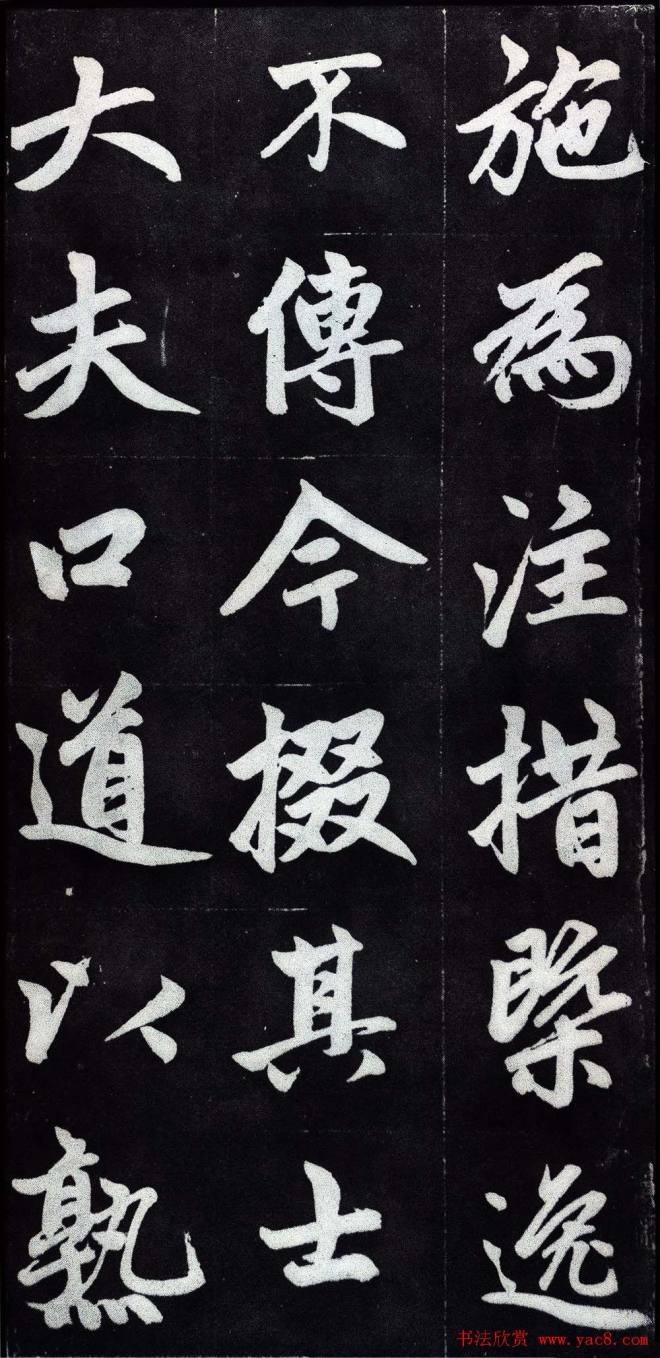 施為注措槩逸
不傳今掇其士
大夫口道以熟
书法欣赏 www.yac8.com